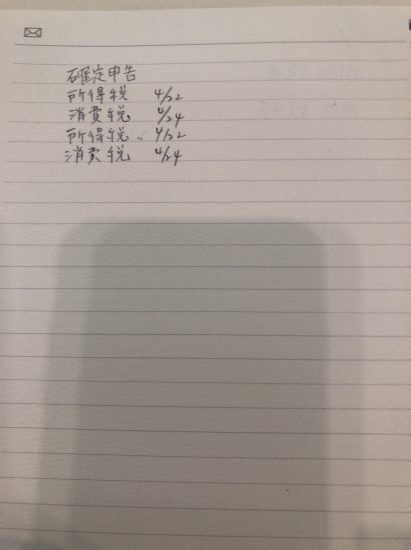 確定申告
所得税 4/22
消費税 4/24
所得税、4/22
消費税 4/24